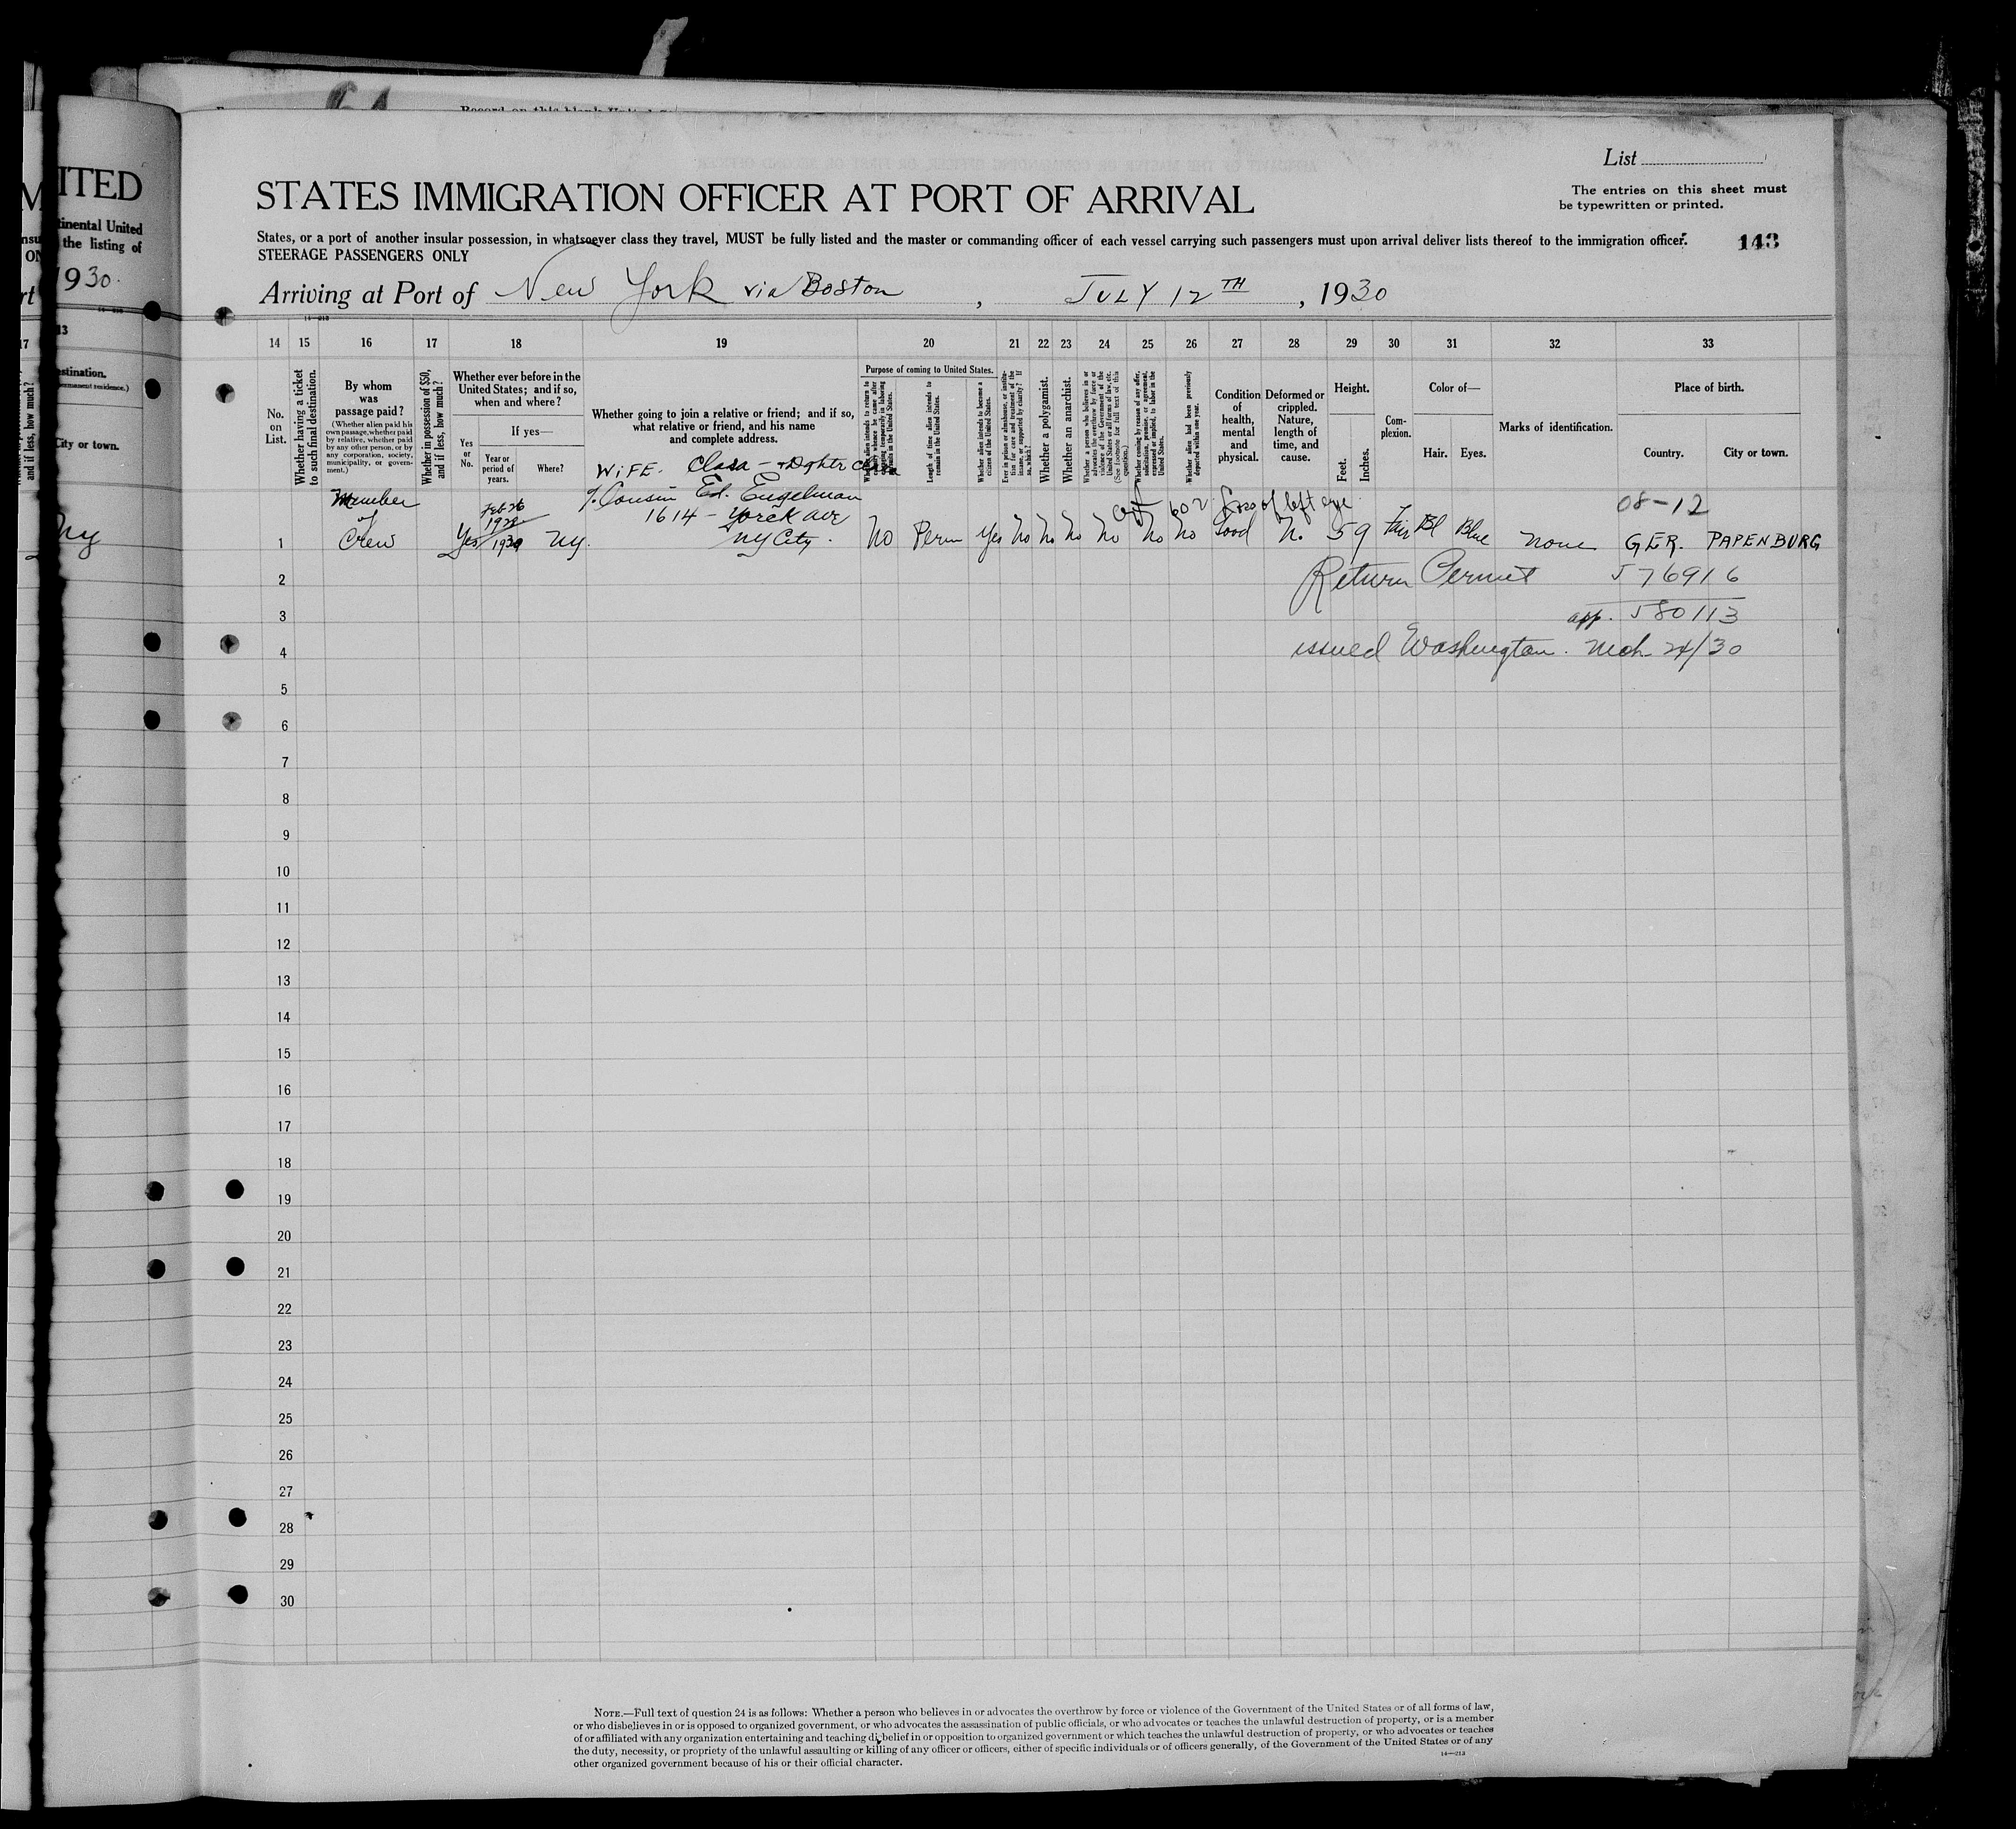 Record on this blank United
List
The entries on this sheet must
be typewritten or printed.
ITED
STATES IMMIGRATION OFFICER AT PORT OF ARRIVAL
tinental United
the listing of
States, or a port of another insular possession, in whatsoever class they travel, MUST be fully listed and the master or commanding officer of each vessel carrying such passengers must upon arrival deliver lists thereof to the immigration officer.
143
STEERAGE PASSENGERS ONLY
1930.
Arriving at Port of New York via Boston, JULY 12TH, 1930
14—213
13 14 15 16 17 18 19 20 21 22 23 24 25 26 27 28 29 30 31 32 33
No. on List.
Whether having a ticket to such final destination.
By whom was passage paid?
(Whether alien paid his own passage, whether paid by relative, whether paid by any other person, or by any corporation, society, municipality, or government.)
Whether in possession of $50, and if less, how much?
Whether ever before in the United States; and if so, when and where?
Yes or No.
If yes—
Year or period of years.
Where?
Whether going to join a relative or friend; and if so, what relative or friend, and his name and complete address.
Purpose of coming to United States.
Whether alien intends to return to country whence he came after engaging temporarily in laboring pursuits in the United States.
Length of time alien intends to remain in the United States.
Whether alien intends to become a citizen of the United States.
Ever in prison or almshouse, or institution for care and treatment of the insane, or supported by charity? If so, which?
Whether a polygamist.
Whether an anarchist.
Whether a person who believes in or advocates the overthrow by force or violence of the Government of the United States or all forms of law, etc. (See footnote for full text of this question.)
Whether coming by reason of any offer, solicitation, promise, or agreement, expressed or implied, to labor in the United States.
Whether alien had been previously deported within one year.
Condition of health, mental and physical.
Deformed or crippled. Nature, length of time, and cause.
Height.
Feet. Inches.
Complexion.
Color of—
Hair. Eyes.
Marks of identification.
Place of birth.
Country. City or town.
City or town.
WIFE. Clara - + Dghter Clara
% Cousin Ed. Engelman
1614 - Yorck ave
NY City.
Member of Crew
Feb 26
1929
1 Yes 1930 NY. No Perm Yes No No No No No No Good No 5 9 Fair Bl Blue none GER. PAPENBURG
602
left eye
08-12
Return Permit 576916
app. 580113
issued Washington. Mch 24/30
2
3
4
5
6
7
8
9
10
11
12
13
14
15
16
17
18
19
20
21
22
23
24
25
26
27
28
29
30
NOTE.—Full text of question 24 is as follows: Whether a person who believes in or advocates the overthrow by force or violence of the Government of the United States or of all forms of law,
or who disbelieves in or is opposed to organized government, or who advocates the assassination of public officials, or who advocates or teaches the unlawful destruction of property, or is a member
of or affiliated with any organization entertaining and teaching disbelief in or opposition to organized government or which teaches the unlawful destruction of property, or who advocates or teaches
the duty, necessity, or propriety of the unlawful assaulting or killing of any officer or officers, either of specific individuals or of officers generally, of the Government of the United States or of any
other organized government because of his or their official character.
14—213